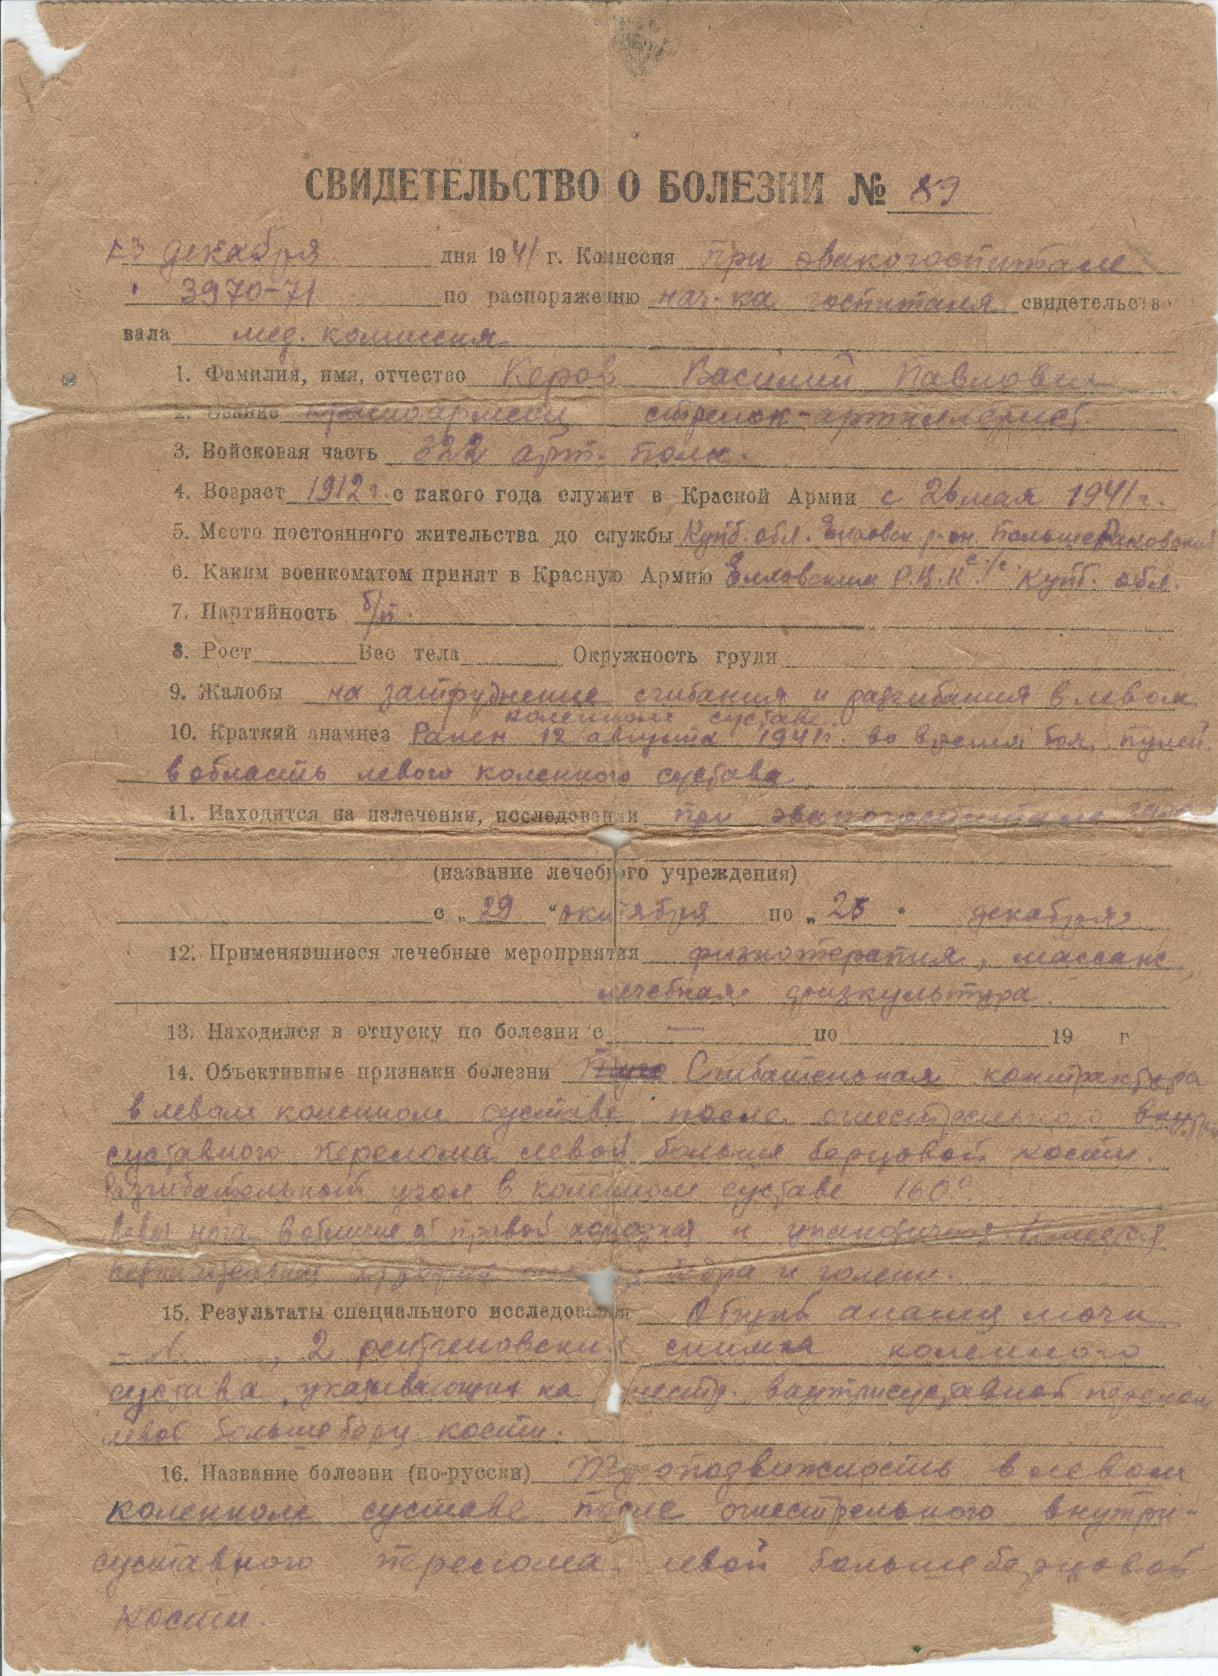 СВИДЕТЕЛЬСТВО О БОЛЕЗНИ № 89
23 декабря дня 1941 г. Комиссия при эвакогоспитале
3970-71 по распоряжению нач-ка госпиталя свидетельство
вала мед. комиссия
1. Фамилия, имя, отчество Керов Василий Павлович
2. Звание красноармеец стрелок-артиллерист
3. Войсковая часть 322 арт. полк.
4. Возраст 1912 г. с какого года служит в Красной Армии с 26 мая 1941 г.
5. Место постоянного жительства до службы Куйб. обл. р-он.
6. Каким военкоматом принят в Красную Армию Елховским Р.В.К. Куйб. обл.
7. Партийность б/п.
8. Рост Вес тела Окружность груди
9. Жалобы на затруднение сгибания и разгибания в левом
коленном суставе.
10. Краткий анамнез Ранен 12 августа 1941 г. во время боя пулей
в область левого коленного сустава
11. Находится на излечении, исследовании при эвакогоспитале
(название лечебного учреждения)
с „ 29 " октября по „ 25 " декабря
12. Применявшиеся лечебные мероприятия физиотерапия, массаж,
лечебная физкультура.
13. Находился в отпуску по болезни с — по 19 г
14. Объективные признаки болезни Сгибательная контрактура
в левом коленном суставе после огнестрельного внутри
суставного перелома левой больше берцовой кости.
Разгибательный угол в коленном суставе 160°
Левая нога в отличие от правой холодная и Имеется
бедра и голени.
15. Результаты специального исследования Общий анализ мочи
, 2 рентгеновских снимка коленного
сустава, указывающих на огнестр. внутрисуставной перелом
левой больше берц кости.
16. Название болезни (по-русски) Тугоподвижность в левом
коленном суставе после огнестрельного внутри-
суставного перелома левой большеберцовой
кости.